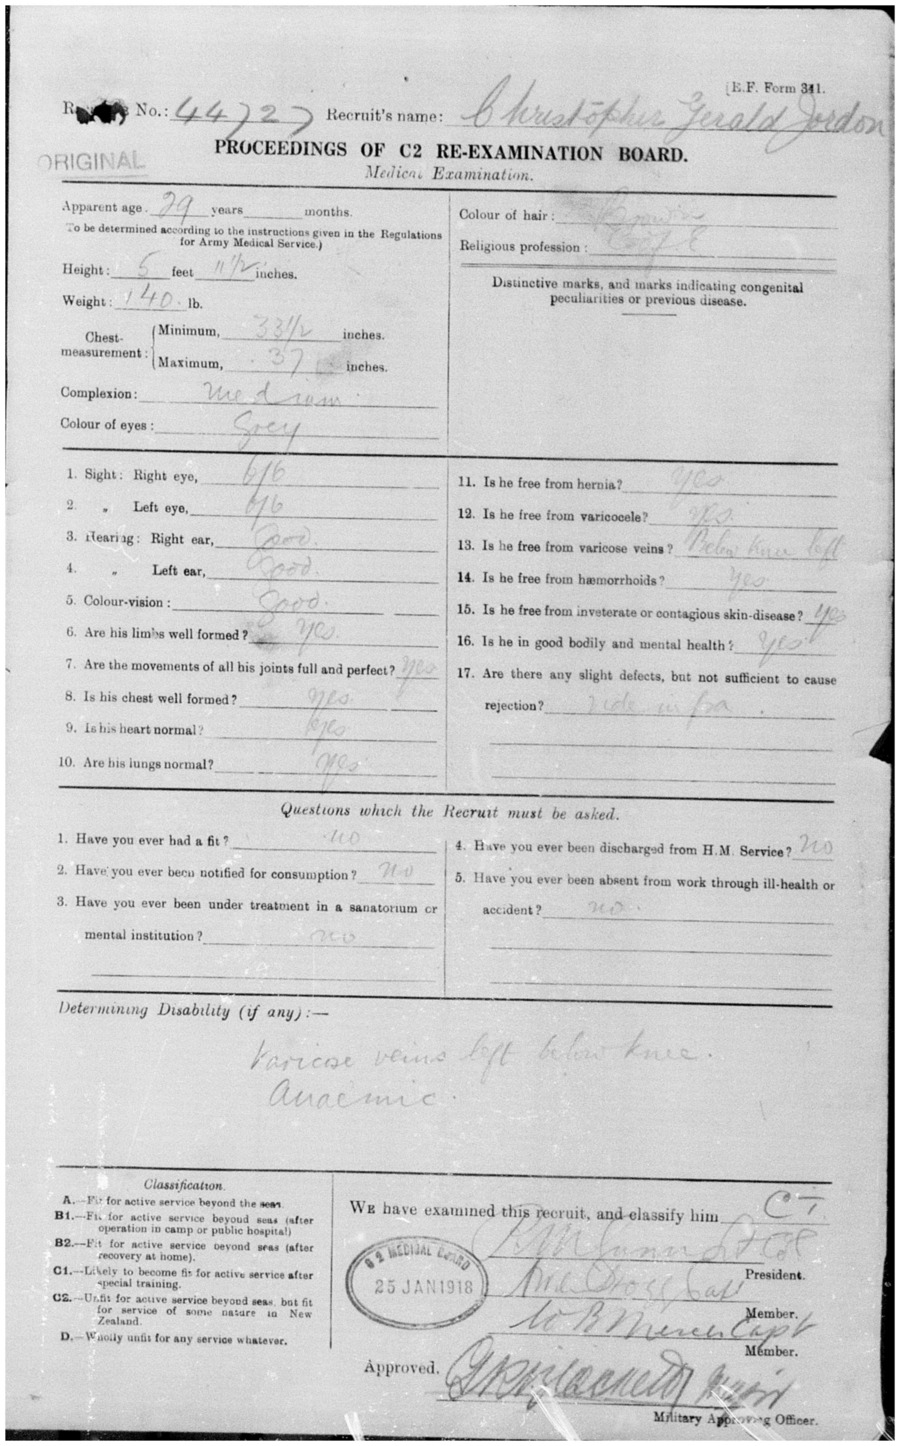 [E.F. Form 341.
No.: 44727 Recruit's name: Christopher Gerald Jordon
PROCEEDINGS OF C2 RE-EXAMINATION BOARD.
ORIGINAL
Medical Examination.
Apparent age 29 years months.
To be determined according to the instructions given in the Regulations
for Army Medical Service.)
Height: 5 feet 11½ inches.
Weight: 140 lb.
Chest-measurement: Minimum, 33½ inches.
Maximum, 37 inches.
Complexion: Medium
Colour of eyes: Grey
Colour of hair: Brown
Religious profession: C of E
Distinctive marks, and marks indicating congenital
peculiarities or previous disease.
1. Sight: Right eye, 6/6
2. „ Left eye, 6/6
3. Hearing: Right ear, Good.
4. „ Left ear, Good.
5. Colour-vision: Good.
6. Are his limbs well formed? Yes.
7. Are the movements of all his joints full and perfect? Yes
8. Is his chest well formed? Yes.
9. Is his heart normal? Yes
10. Are his lungs normal? Yes
11. Is he free from hernia? Yes
12. Is he free from varicocele? Yes.
13. Is he free from varicose veins? Below knee left
14. Is he free from hæmorrhoids? Yes
15. Is he free from inveterate or contagious skin-disease? Yes
16. Is he in good bodily and mental health? Yes
17. Are there any slight defects, but not sufficient to cause
rejection? Vide infra.
Questions which the Recruit must be asked.
1. Have you ever had a fit? no
2. Have you ever been notified for consumption? no
3. Have you ever been under treatment in a sanatorium or
mental institution? no
4. Have you ever been discharged from H.M. Service? no
5. Have you ever been absent from work through ill-health or
accident? no.
Determining Disability (if any):—
Varicose veins left below knee.
Anaemic.
Classification.
A.—Fit for active service beyond the seas.
B1.—Fit for active service beyond seas (after
operation in camp or public hospital)
B2.—Fit for active service beyond seas (after
recovery at home).
C1.—Likely to become fit for active service after
special training.
C2.—Unfit for active service beyond seas, but fit
for service of some nature in New
Zealand.
D.—Wholly unfit for any service whatever.
WE have examined this recruit, and classify him C1
President.
C2 MEDICAL BOARD
25 JAN 1918
Capt
Member.
W B Mercer Capt
Member.
Approved. Major
Military Approving Officer.